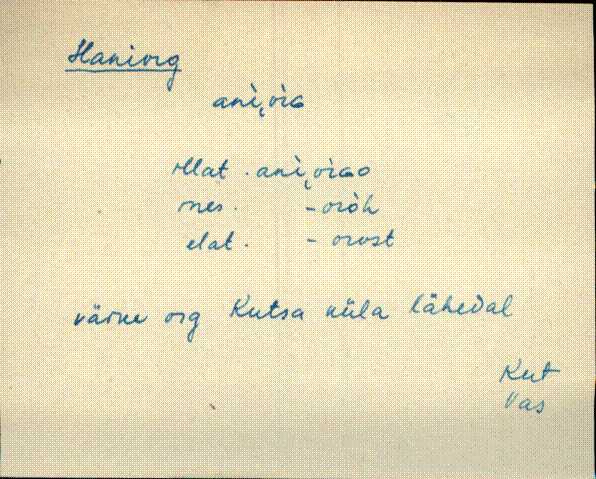 Haniorg
ani̮òrG
illat. ani̮òrGO
ines. -oròh
elat. - orost
väike org Kutsa küla lähedal
Kut
Vas